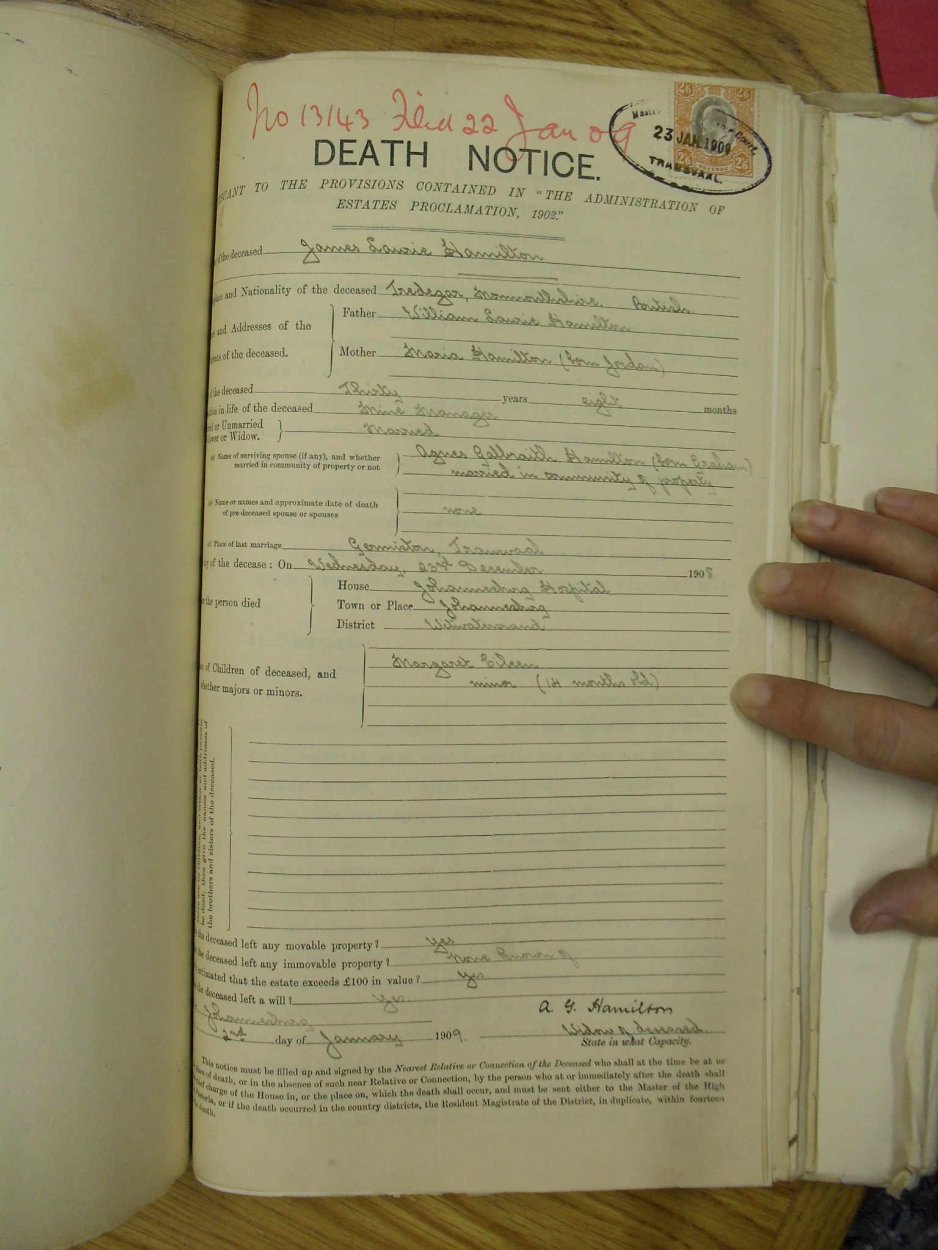 No 13143 Filed 22 Jan 09
26 26
Master
Court,
23 JAN. 1909
TRANSVAAL.
2/6 2/6
DEATH NOTICE.
SUANT TO THE PROVISIONS CONTAINED IN "THE ADMINISTRATION OF
ESTATES PROCLAMATION, 1902."
of the deceased James Laurie Hamilton
place and Nationality of the deceased Tredegar, Monmouthshire. British
es and Addresses of the
rents of the deceased.
Father William Laurie Hamilton
Mother Maria Hamilton (born Jordan)
of the deceased Thirty years eight months
ition in life of the deceased Mine Manager
ed or Unmarried
ower or Widow.
Married
(a) Name of surviving spouse (if any), and whether
married in community of property or not
Agnes Galbraith Hamilton (born Graham)
married in community of property
(b) Name or names and approximate date of death
of pre-deceased spouse or spouses
none
(c) Place of last marriage Germiston, Transvaal
ay of the decease: On Wednesday, 23rd December 1908
e the person died
House Johannesburg Hospital
Town or Place Johannesburg
District Witwatersrand
es of Children of deceased, and
whether majors or minors.
Margaret Eileen
minor (14 months old)
be dead, then give the names and addresses of
the brothers and sisters of the deceased.
the deceased left any movable property? Yes
the deceased left any immovable property? None known of
estimated that the estate exceeds £100 in value? Yes
the deceased left a will? Yes.
Johannesburg
2nd day of January 1909.
A. G. Hamilton
Widow of deceased.
State in what Capacity.
This notice must be filled up and signed by the Nearest Relative or Connection of the Deceased who shall at the time be at or
of death, or in the absence of such near Relative or Connection, by the person who at or immediately after the death shall
charge of the House in, or the place on, which the death shall occur, and must be sent either to the Master of the High
etoria, or if the death occurred in the country districts, the Resident Magistrate of the District, in duplicate, within fourteen
death.